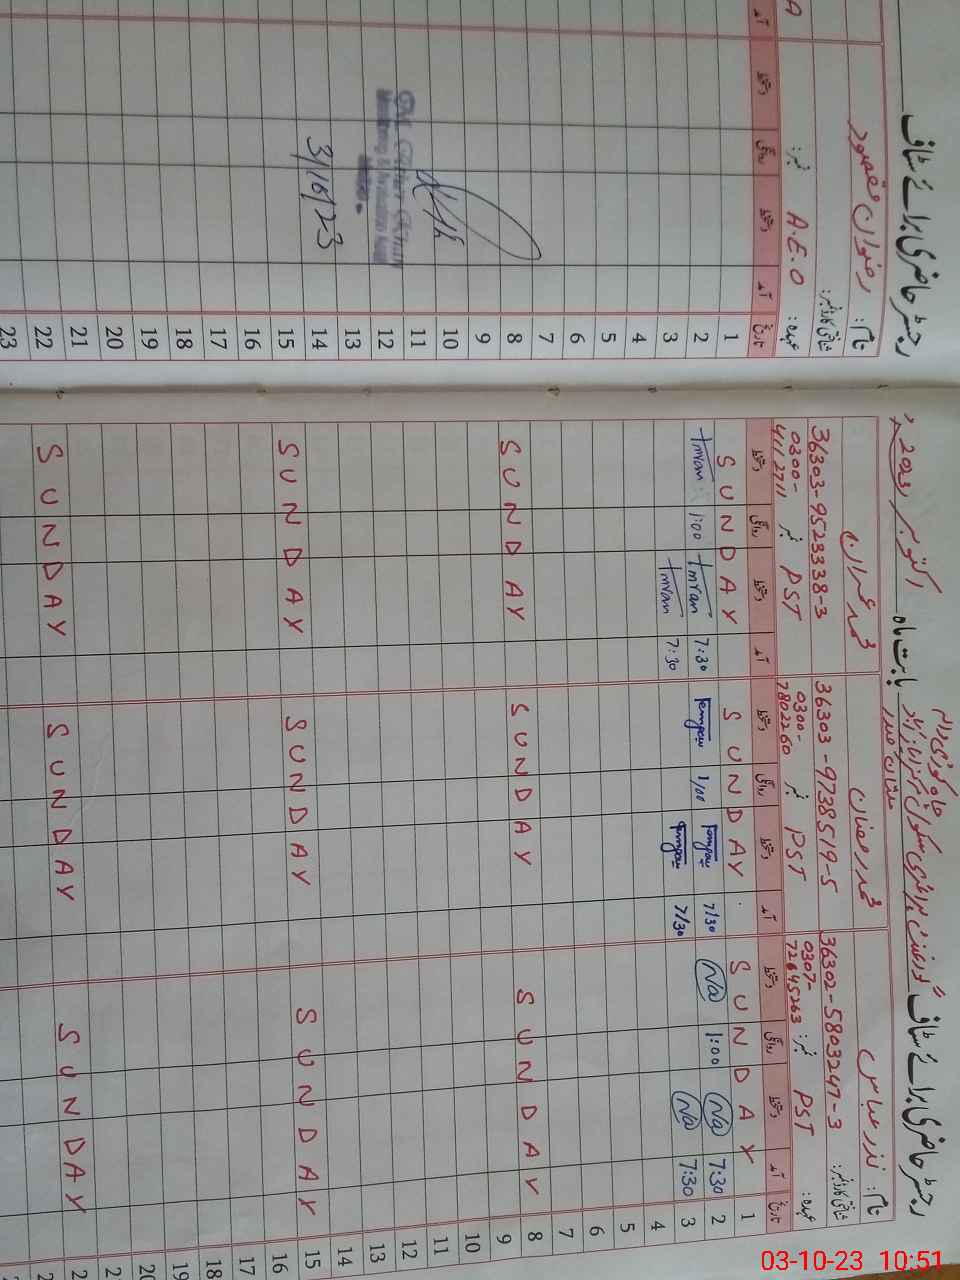 رجسٹر حاضری برائے سٹاف
نام: رضوان مقصود
شناختی کارڈ نمبر:
عہدہ: A.E.O نمبر:
تاریخ آمد دستخط روانگی دستخط
1
2
3
4
5
6
7
8
9
10
11
12
13
14
15
16
17
18
19
20
21
22
23
3/10/23
رجسٹر حاضری برائے سٹاف
بابت ماہ اکتوبر 2023
نام: نذر عباس محمد رمضان محمد عمران
شناختی کارڈ نمبر: 36302-5803247-3 36303-9738519-5 36303-9523338-3
عہدہ: PST نمبر: 0307-72645263 PST نمبر: 0300-7802260 PST نمبر: 0300-4112711
تاریخ آمد دستخط روانگی دستخط آمد دستخط روانگی دستخط آمد دستخط روانگی دستخط
1 SUNDAY SUNDAY SUNDAY
2 7:30 Na 1:00 Na 7/30 1/00 7:30 Imran 1:00 Imran
3 7:30 Na 7/30 7:30 Imran
4
5
6
7
8 SUNDAY SUNDAY SUNDAY
9
10
11
12
13
14
15 SUNDAY SUNDAY SUNDAY
16
17
18
19
20
SUNDAY SUNDAY SUNDAY
03-10-23 10:51